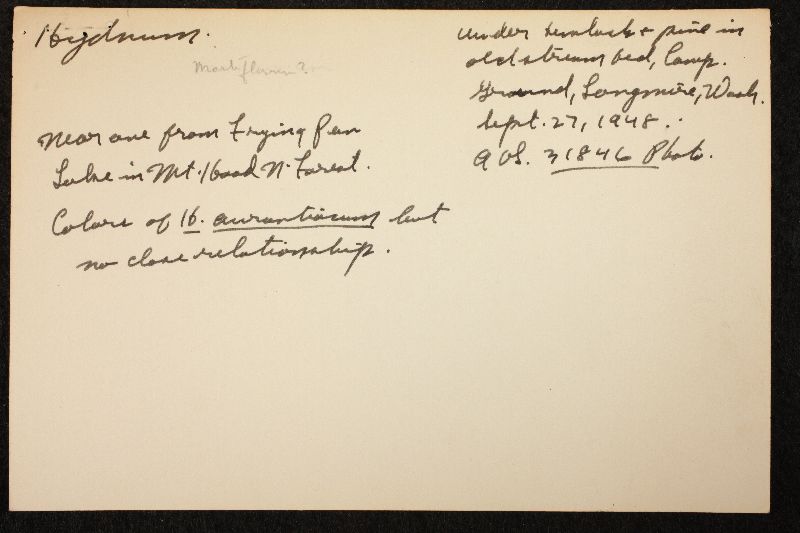 Hydnum.
Near one from Frying Pan
Lake in Mt. Hood N. Forest.
Colors of H. aurantiacum but
no close relationship.
under hemlock & pine in
old stream bed, Camp.
Ground, Longmire, Wash.
Sept. 27, 1948.
AHS. 31846 Photo.